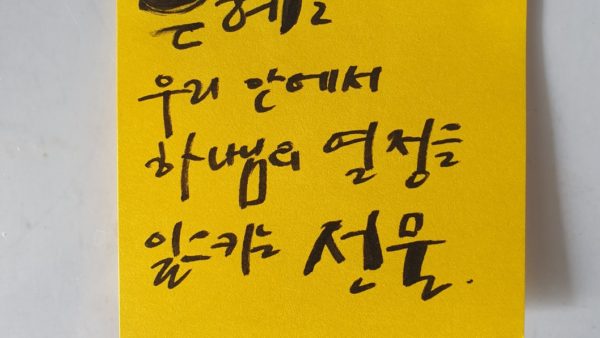 은혜는
우리 안에서
하나님의 열정을
일으키는 선물.